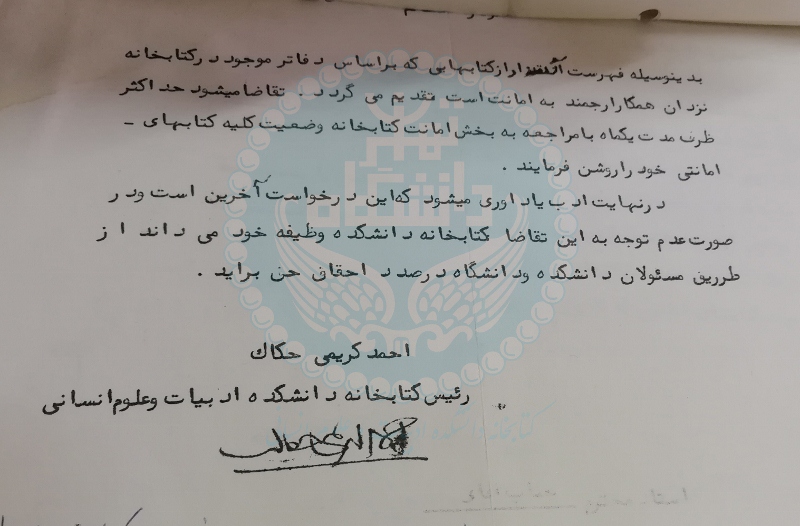 بدینوسیله فهرست آنقدر از کتابهایی که براساس دفاتر موجود در کتابخانه
نزد آن همکار ارجمند به امانت است تقدیم می گردد . تقاضا میشود حداکثر
ظرف مدت یکماه با مراجعه به بخش امانت کتابخانه وضعیت کلیه کتابهای -
امانتی خود را روشن فرمایند .
در نهایت ادب یادآوری میشود که این درخواست آخرین است و در
صورت عدم توجه به این تقاضا کتابخانه دانشکده وظیفه خود می داند از
طریق مسئولان دانشکده و دانشگاه درصدد احقاق حق برآید .
احمد کریمی حکاک
رئیس کتابخانه دانشکده ادبیات و علوم انسانی